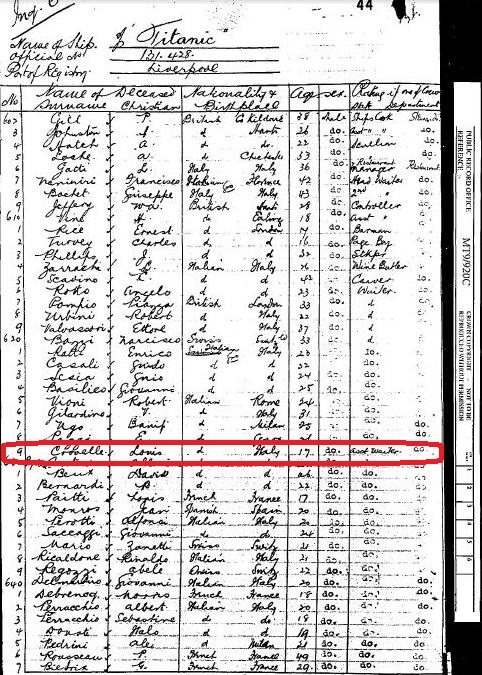 44
Name of Ship "Titanic"
Official No 131.428.
Port of Registry Liverpool
No Name of Deceased Nationality & Age sex. Rating if one of Crew
Surname Christian Birthplace State Department
602 Gill P. British Co Kildare 38 Male Ships Cook
3 Johnston J. d Hants 26 do. Asst " do.
4 Hatch a. d do. 22 do. Scullion do.
5 Loake a. d 33 do.
6 Gatti L. Italy Italy 36 do. Manager Restaurant
7 Nannini Francisco Italian Florence 42 do. Head Waiter do.
8 Bochet Giuseppe Italy Italy 43 do. 2nd " do.
9 Jeffery W.A. British Hants 28 do. Controller do.
610 Vine H. d Ealing 18 do. Asst " do.
1 Rice Ernest d London 14 do. Barman do.
2 Turvey Charles d d 16 do. Page Boy do.
3 Phillips J. d d 32 do. do.
4 Zarracchi L. Italian Italy 26 do. Wine Butler do.
5 Scavino C. d d 42 do. Carver do.
6 Rotto Angelo d d 23 do. Waiter. do.
7 Pompio Piazza British London 33 do. d do.
8 Urbini Robert d Italy 22 do. d do.
9 Valvassori Ettore d Italy 37 do. d do.
620 Bazzi Narcisco Swiss 33 do. d do.
1 Ratti Enrico Italy 23 do. do.
2 Casali Guido d d 32 do. do.
3 Sesia Gino d d 24 do. do.
4 Basilico Giovanni d d 25 do. do.
5 Vioni Robert Italian Rome 24 do. do.
6 Gilardino V. d Italy 31 do. do.
7 Ugo Banfi d Milan 25 do. do.
8 E. d do. do.
9 Crovelle Louis d Italy 17 do. Asst Waiter do.
1 Beux David d d 26 do. do.
2 Bernardi B. d d 22 do. do.
3 Louis French France 17 do. do.
4 Monros Jean Spanish Spain 20 do. do.
5 Perotti Alfonsi Italian Italy 20 do. do.
6 Saccaggi Giovanni d d 24 do. do.
7 Mario Zanetti Swiss 20 do. do.
8 Ricaldone Rinaldo Italian Italy 22 do. do.
9 Abele Swiss 22 do. do.
640 Giovanni Italian Italy 20 do. do.
1 Debreucq French France 18 do. do.
2 Perracchio Albert Italian Italy 20 do. do.
3 Perracchio Sebastino d d 18 do. do.
4 Donati Italo d d 19 do. do.
5 Pedrini Ales d Milan 21 do. do.
6 Rousseau P. French France 49 do.
7 Bietrix G. French France 29. do.
PUBLIC RECORD OFFICE
REFERENCE:-
MT9/920C
CROWN COPYRIGHT - NOT TO BE
REPRODUCED WITHOUT PERMISSION
1
2
3
4
5
6